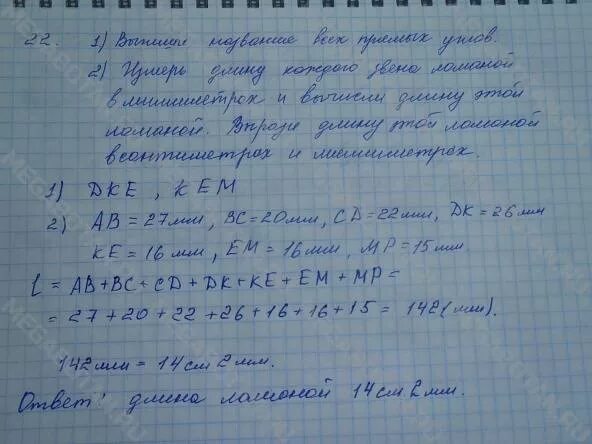 22. 1) Выпиши название всех прямых углов.
2) Измерь длину каждого звена ломаной
в миллиметрах и вычисли длину этой
ломаной. Вырази длину этой ломаной
в сантиметрах и миллиметрах.
1) DKE, KEM
2) AB = 27мм, BC = 20мм, CD = 22мм, DK = 26мм
KE = 16 мм, EM = 16мм, MP = 15мм.
L = AB + BC + CD + DK + KE + EM + MP =
= 27 + 20 + 22 + 26 + 16 + 16 + 15 = 142 (мм).
142мм = 14 см 2 мм.
Ответ: длина ломаной 14 см 2 мм.